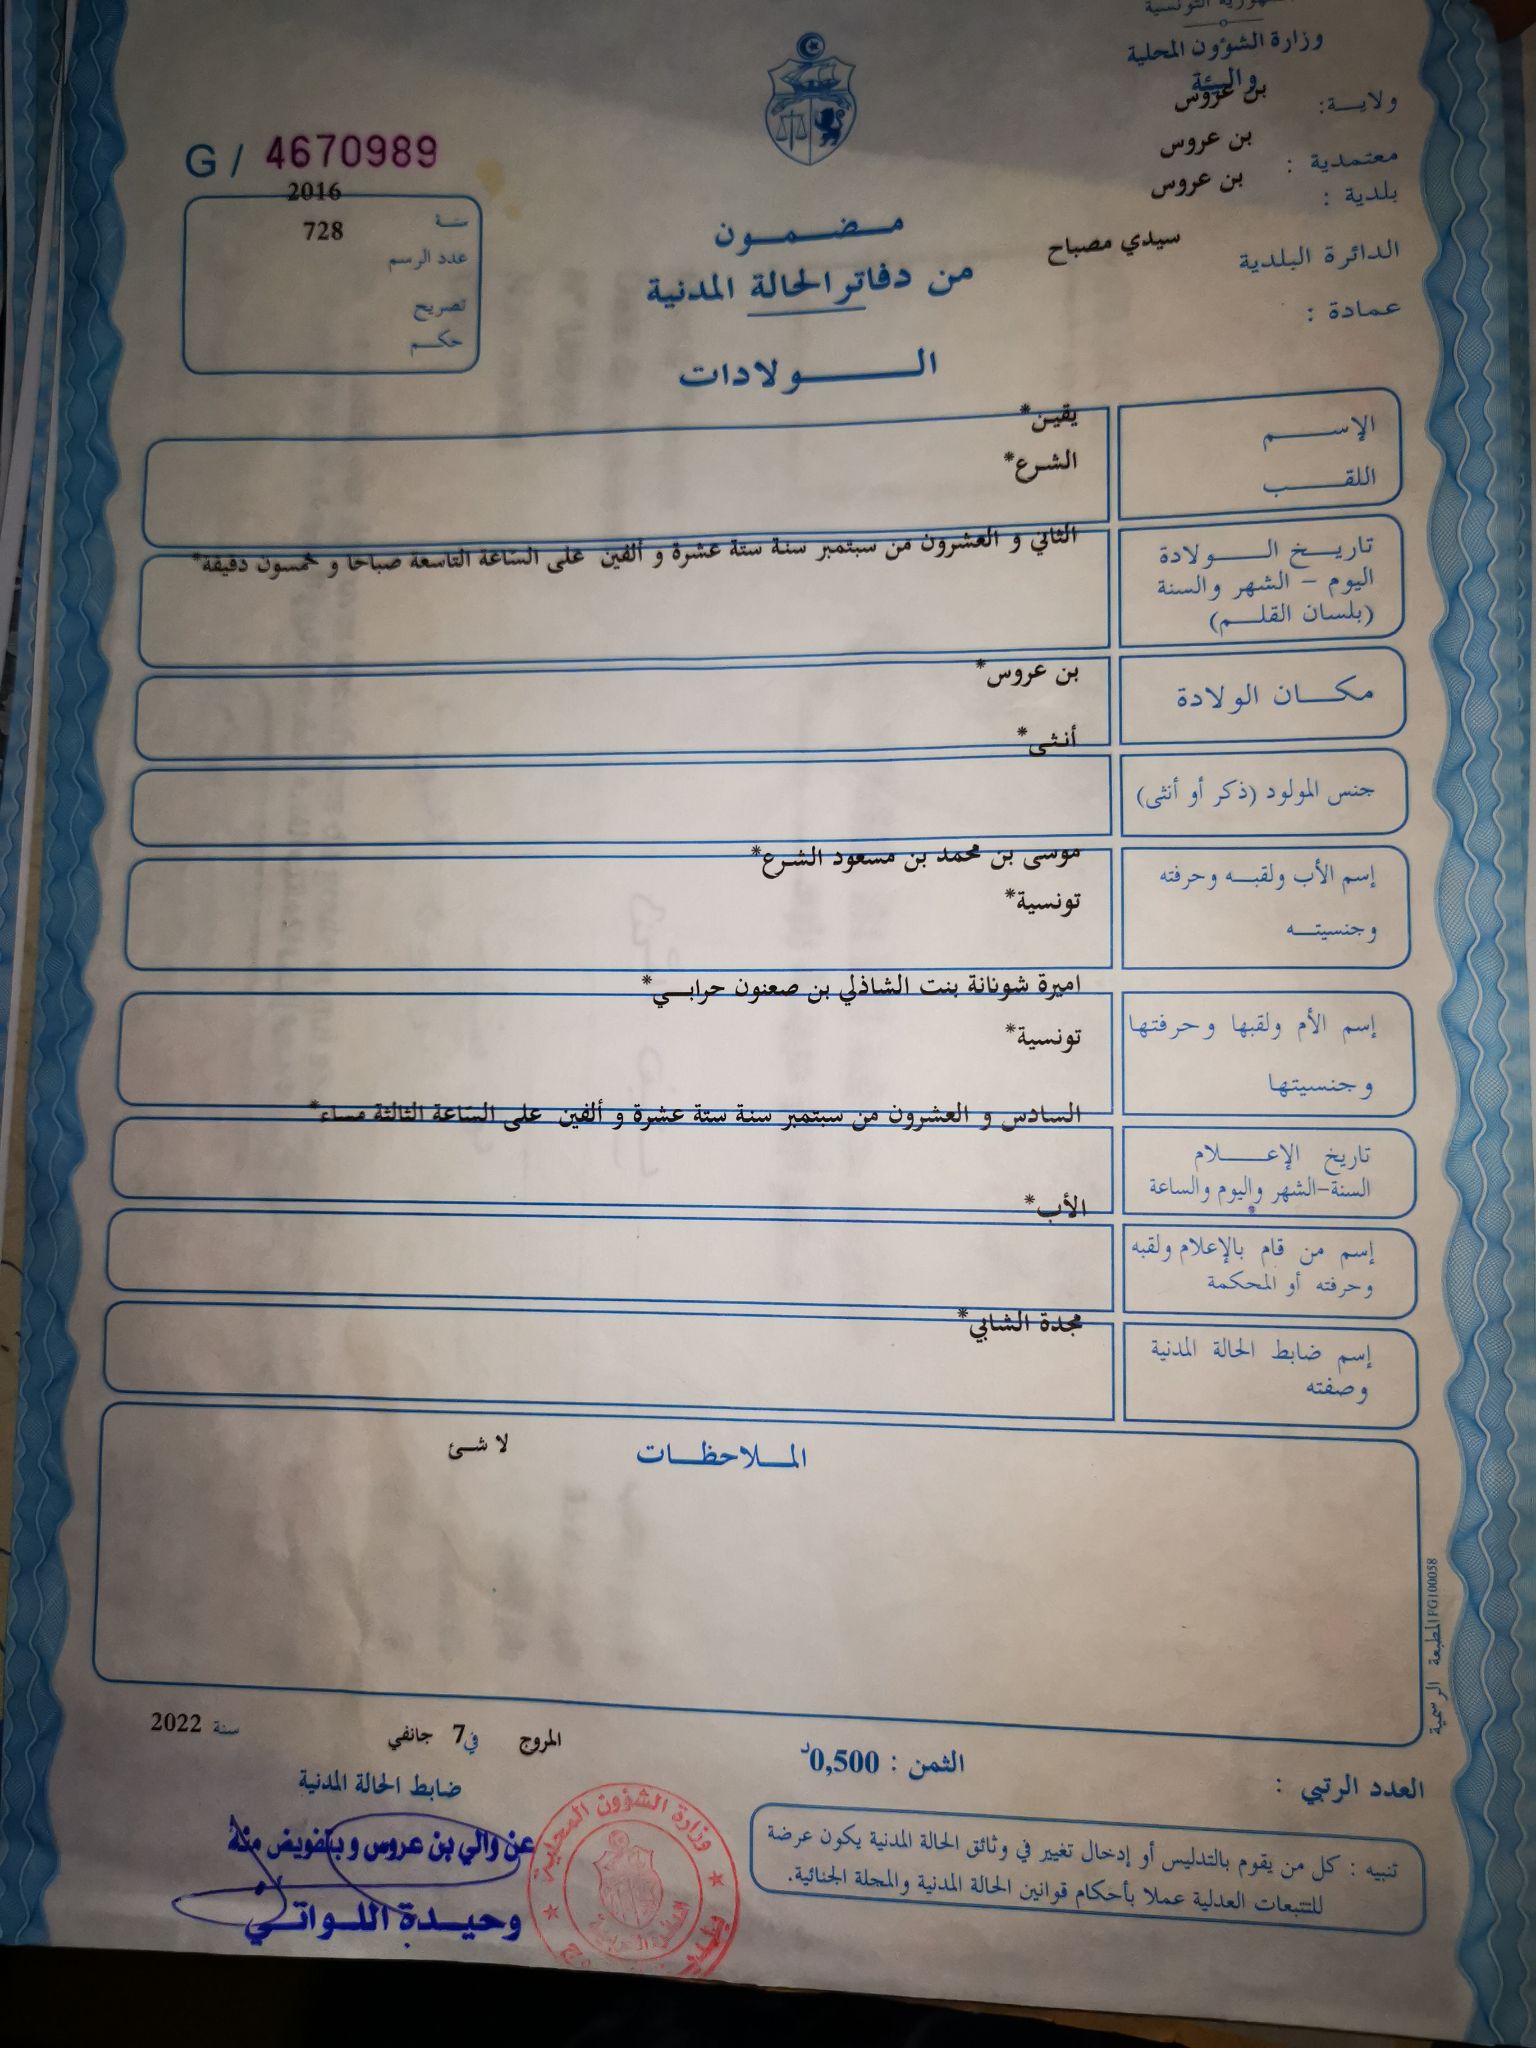 الجمهورية التونسية
وزارة الشؤون المحلية
والبيئة
ولايــة: بن عروس
معتمدية : بن عروس
بلدية : بن عروس
الدائرة البلدية سيدي مصباح
عمادة :
G / 4670989
سنة 2016
عدد الرسم 728
تصريح
حكم
مضمون
من دفاتر الحالة المدنية
الولادات
الإسم يقين*
اللقب الشرع*
تاريخ الولادة
اليوم - الشهر والسنة
(بلسان القلم)
الثاني و العشرون من سبتمبر سنة ستة عشرة و ألفين على السّاعة التاسعة صباحا و خمسون دقيقة*
مكان الولادة بن عروس*
جنس المولود (ذكر أو أنثى) أنثى*
إسم الأب ولقبه وحرفته موسى بن محمد بن مسعود الشرع*
وجنسيته تونسية*
إسم الأم ولقبها وحرفتها اميرة شونانة بنت الشاذلي بن صعنون حرابي*
وجنسيتها تونسية*
تاريخ الإعلام
السنة-الشهر واليوم والساعة
السادس و العشرون من سبتمبر سنة ستة عشرة و ألفين على السّاعة الثالثة مساء*
إسم من قام بالإعلام ولقبه
وحرفته أو المحكمة
الأب*
إسم ضابط الحالة المدنية
وصفته
مجدة الشابي*
الملاحظات لا شئ
المطبعة الرسمية FG100058
المروج في 7 جانفي سنة 2022
ضابط الحالة المدنية
عن والي بن عروس و بتفويض منه
وحيدة اللواتي
وزارة الشؤون المحلية
العدد الرتبي :
الثمن : 0,500د
تنبيه : كل من يقوم بالتدليس أو إدخال تغيير في وثائق الحالة المدنية يكون عرضة
للتتبعات العدلية عملا بأحكام قوانين الحالة المدنية والمجلة الجنائية.